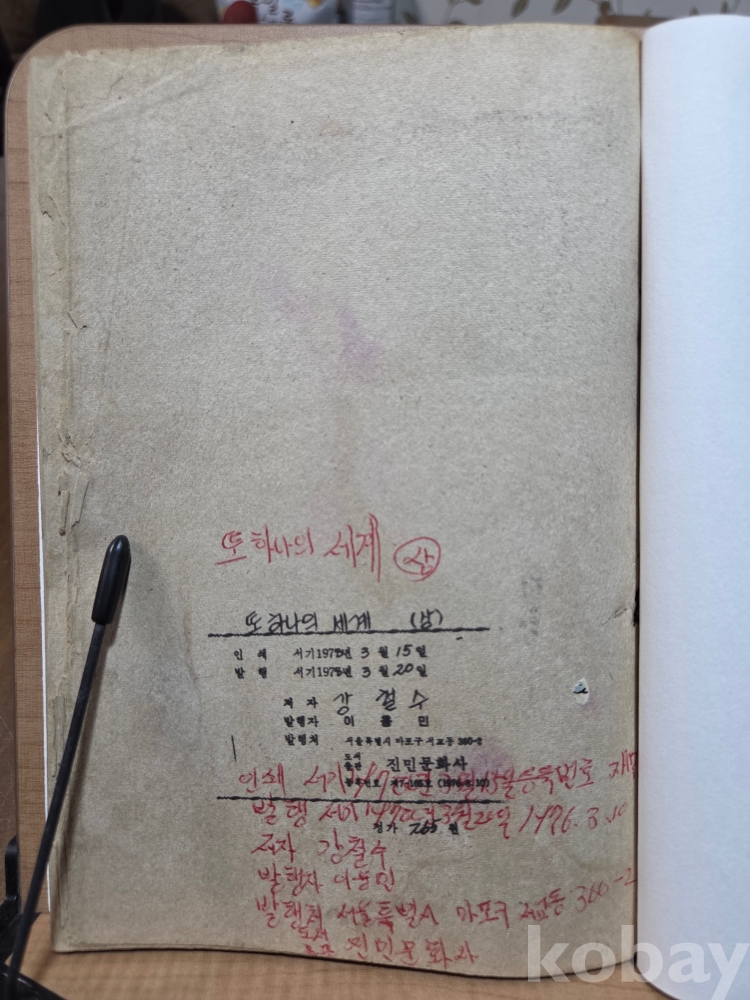 또 하나의 세계 상
또 하나의 세계 (상)
인 쇄 서기197 년 3 월 15일
발 행 서기197 년 3 월 20일
저 자 강 철 수
발행자 이 용 민
발행처 서울특별시 마포구 서교동 360-2
도서
출판 진민문화사
(1976. 3. 10)
정가 원
인쇄 서기 등록번호
발행 서기 3월 20일 1976. 3. 10
저자 강철수
발행자 이용민
발행처 서울특별시 마포구 서교동 360-2
도서
진민문화사
kobay